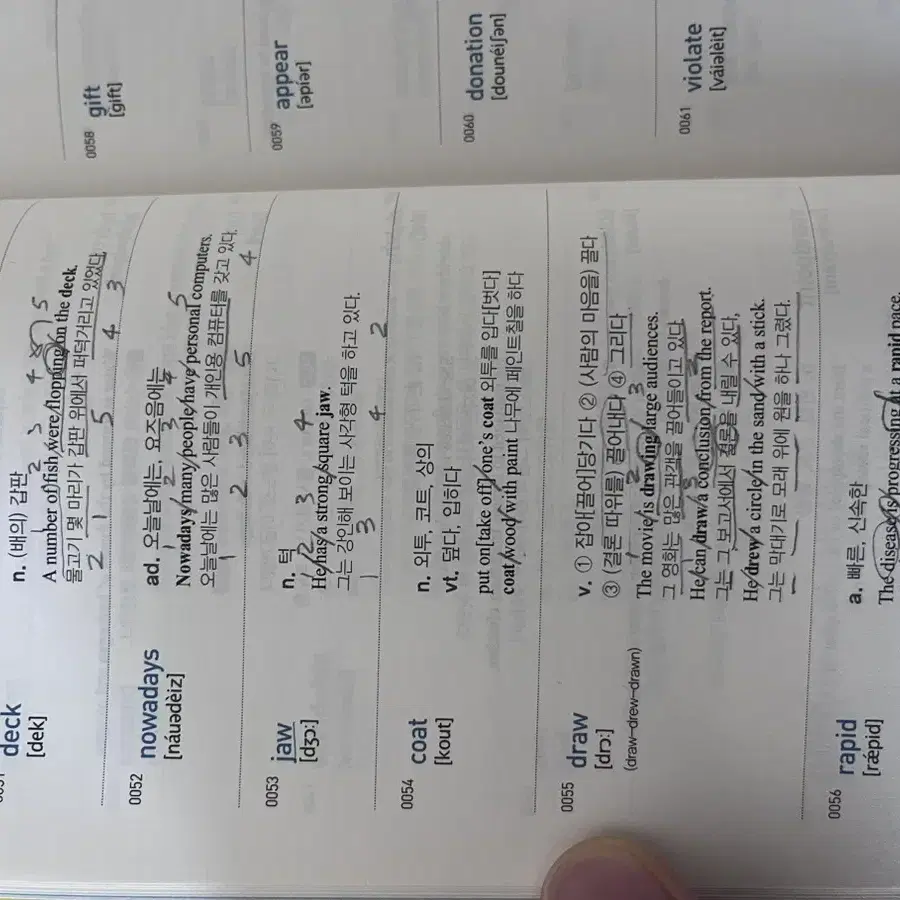 deck
[dek]
n. (배의) 갑판
A number of fish were flopping on the deck.
물고기 몇 마리가 갑판 위에서 퍼덕거리고 있었다.
2 3 4 5
2 1 5 4 3
0052 nowadays
[náuədèiz]
ad. 오늘날에는, 요즈음에는
Nowadays many people have personal computers.
오늘날에는 많은 사람들이 개인용 컴퓨터를 갖고 있다.
1 2 3 4 5
1 2 3 5 4
0053 jaw
[dʒɔː]
n. 턱
He has a strong square jaw.
그는 강인해 보이는 사각형 턱을 하고 있다.
1 2 3 4
1 3 4 2
0054 coat
[kout]
n. 외투, 코트, 상의
vt. 덮다, 입히다
put on[take off] one's coat 외투를 입다[벗다]
coat wood with paint 나무에 페인트칠을 하다
0055 draw
[drɔː]
(draw-drew-drawn)
v. ① 잡아[끌어]당기다 ② (사람의 마음을) 끌다
③ (결론 따위를) 끌어내다 ④ 그리다
The movie is drawing large audiences.
그 영화는 많은 관객을 끌어들이고 있다.
1 2 3
He can draw a conclusion from the report.
그는 그 보고서에서 결론을 내릴 수 있다.
He drew a circle in the sand with a stick.
그는 막대기로 모래 위에 원을 하나 그렸다.
0056 rapid
[rǽpid]
a. 빠른, 신속한
The disease is progressing at a rapid pace.
0058 gift
[gift]
0059 appear
[əpíər]
0060 donation
[dounéiʃən]
0061 violate
[váiəlèit]